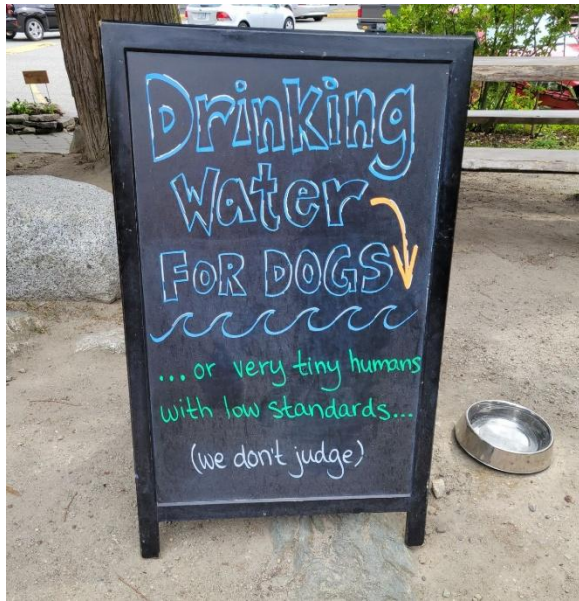 Drinking
Water
FOR DOGS
...or very tiny humans
with low standards...
(we don't judge)